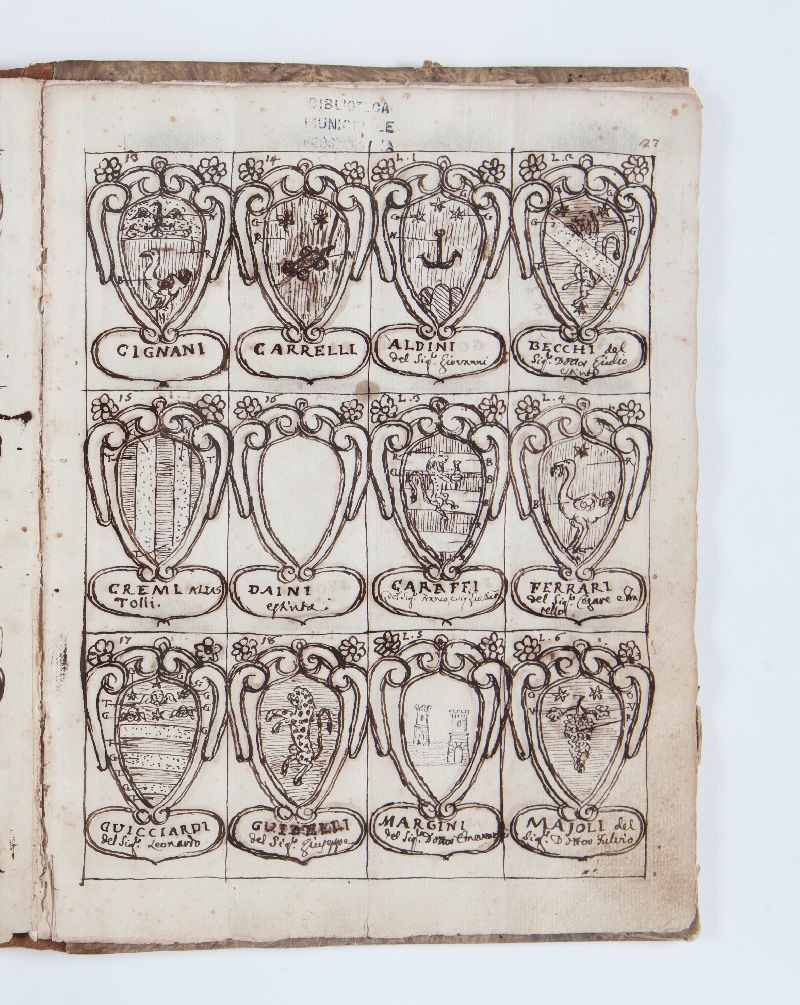 BIBLIOTECA
MUNICIPALE
27
13
14
L. 1
L. 2
CIGNANI
CARRELLI
ALDINI
del Sig.r Giovanni
BECCHI del
Sig.r Dottor Giulio
15
16
L. 3
L. 4
CREMI ALIAS
Tolli.
DAINI
estinta
CARAFFI
FERRARI
del Sig.r Cesare e fra
tello
17
18
L. 5
L. 6
GUICCIARDI
del Sig.r Leonardo
GUIDELLI
del Sig.r Giuseppe
MARGINI
del Sig.r Dottor
MAJOLI del
Sig.r Dottor Fulvio